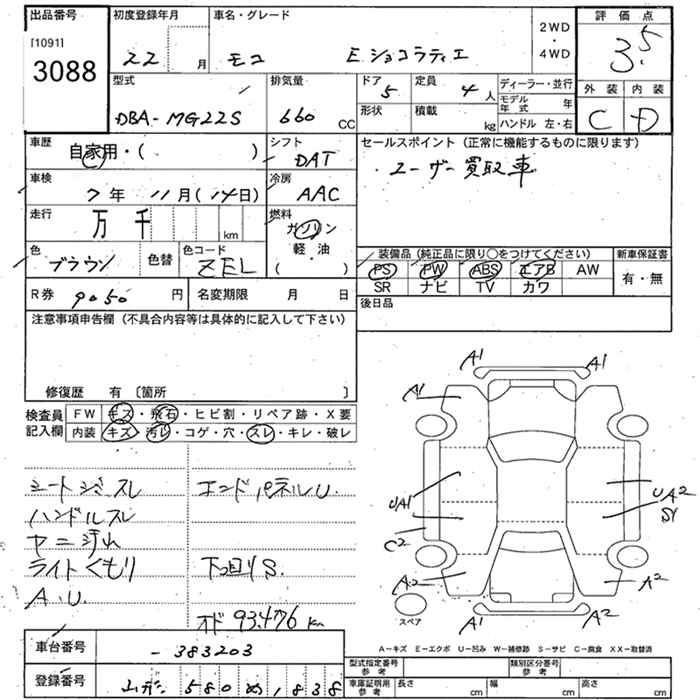 出品番号
[1091]
3088
初度登録年月
22 月
車名・グレード
モコ Eショコラティエ
2WD
・
4WD
評価点
3.5
外装 内装
C D
型式
DBA-MG22S
排気量
660 CC
ドア
5
定員
4 人
形状
積載
kg
ディーラー・並行
モデル年式 年
ハンドル 左・右
車歴
自家用・( )
シフト
DAT
車検
7年 11月(14日)
冷房
AAC
走行
万 千 km
燃料
ガソリン
軽・油
( )
色
ブラウン
色替
色コード
ZEL
R券 9050 円
名変期限 月 日
セールスポイント(正常に機能するものに限ります)
・ユーザー買取車
装備品(純正品に限り○をつけてください)
PS PW ABS エアB AW
SR ナビ TV カワ
新車保証書
有・無
後日品
注意事項申告欄(不具合内容等は具体的に記入して下さい)
修復歴 有〔箇所 〕
検査員記入欄
FW キズ・飛石・ヒビ割・リペア跡・X要
内装 キズ・汚レ・コゲ・穴・スレ・キレ・破レ
シートシミスレ エンドパネルU.
ハンドルスレ
ヤニ汚れ
ライトくもり 下回りS.
A.U.
オド 93.476 Km
A1 A1
A1
UA1 UA2
S1
C2
A2 A2
A1 A2
スペア
A-キズ E-エクボ U-凹み W-補修跡 S-サビ C-腐食 XX-取替済
車台番号
-383203
登録番号
580 1838
型式指定番号
参考
類別区分番号
参考
車庫証明用
参考
長さ cm
幅 cm
高さ cm